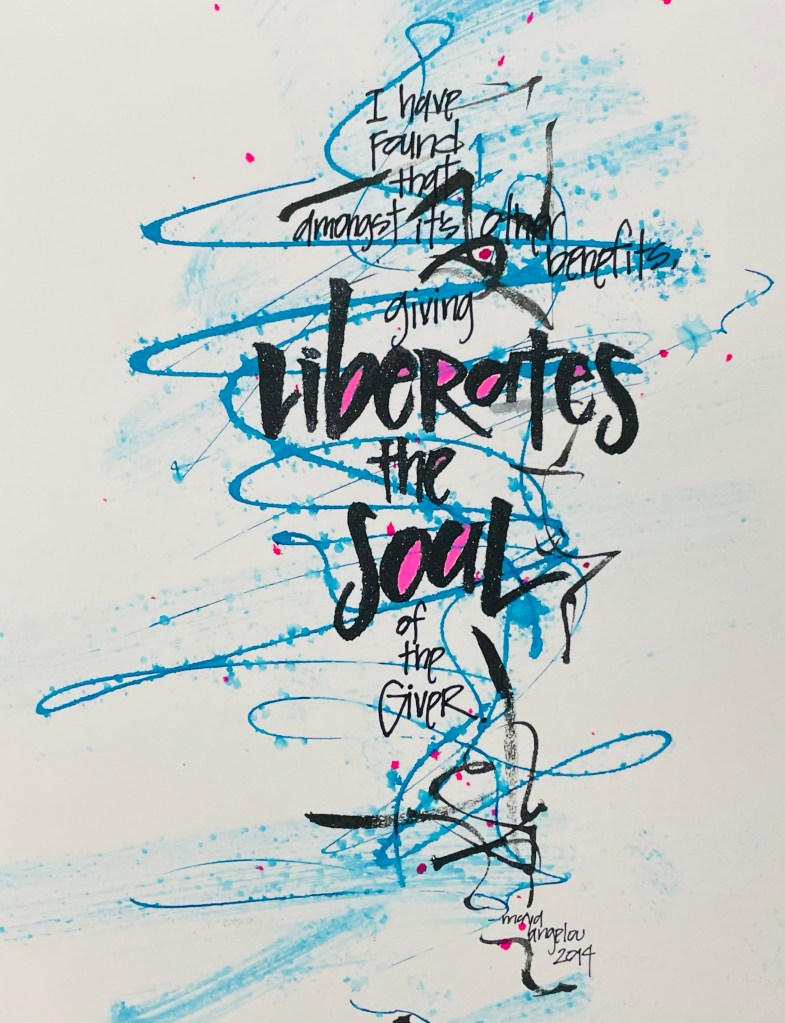 I have
Found
that
amongst it's other
benefits,
giving
LibeRates
the
Soul
of
the
GiveR.
maya
angelou
2014